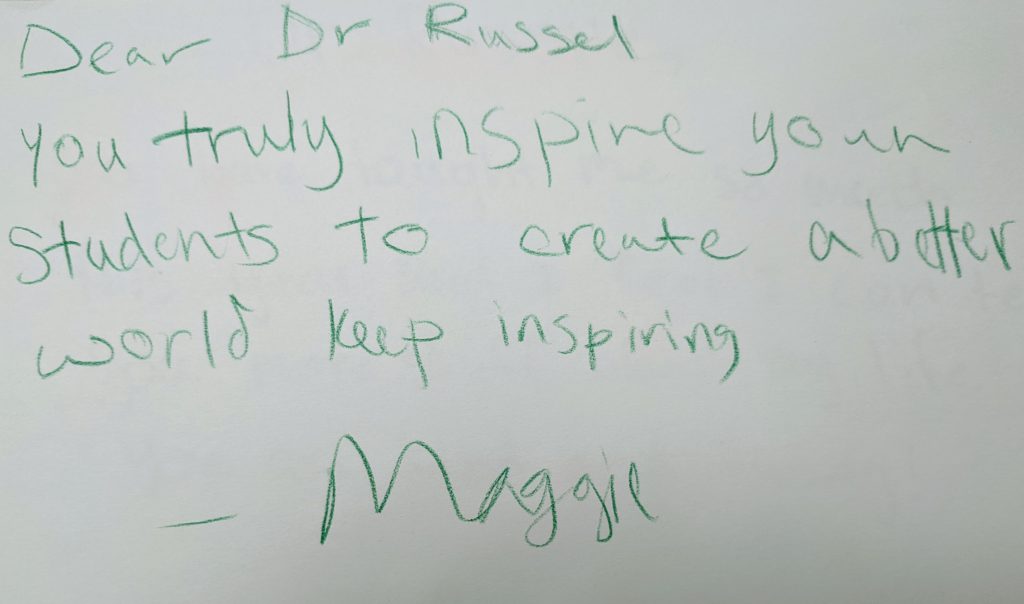 Dear Dr Russel
you truly inspire your
students to create a better
world keep inspiring
— Maggie